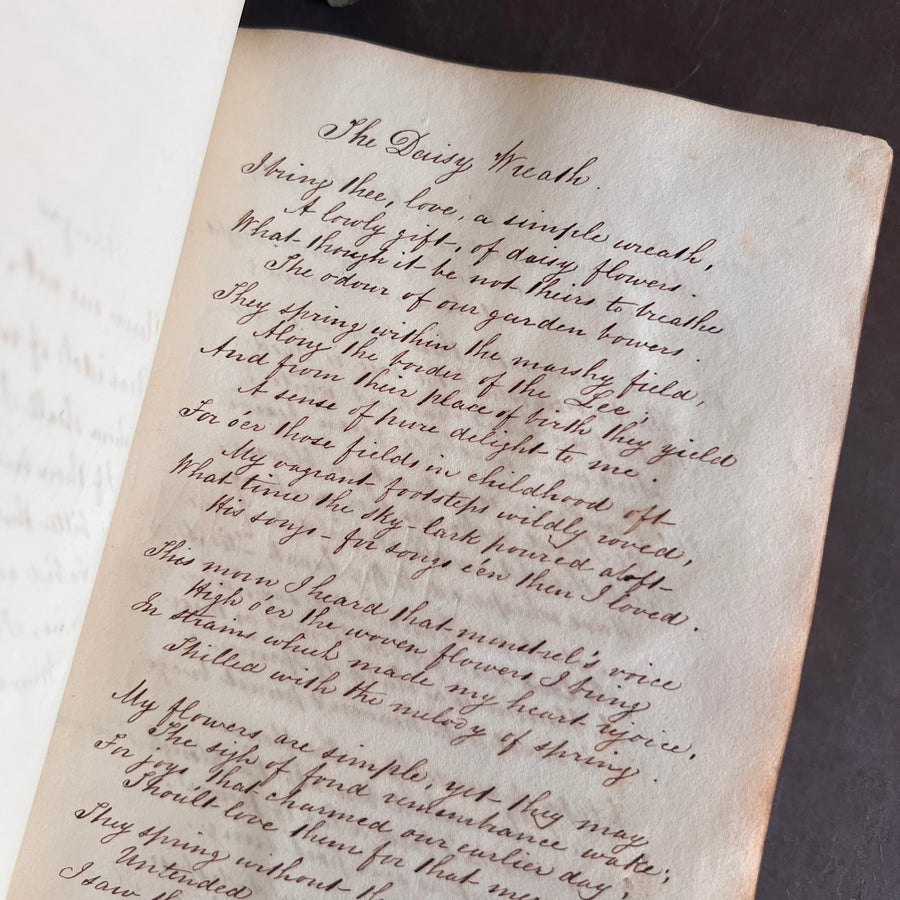 The Daisy Wreath.
I bring thee, love, a simple wreath,
A lowly gift, of daisy flowers.
What though it be not theirs to breathe
The odour of our garden bowers.
They spring within the marshy field,
Along the border of the Lee;
And from their place of birth they yield
A sense of pure delight to me.
For o'er those fields in childhood oft
My vagrant footsteps wildly roved,
What time the sky-lark poured aloft
His songs - for songs e'en then I loved.
This morn I heard that minstrel's voice
High o'er the woven flowers I bring
In strains which made my heart rejoice,
Thilled with the melody of spring.
My flowers are simple, yet they may
The sigh of fond remembrance wake;
For joys that charmed our earlier day;
Thou'lt love them for that
They spring without
Untended
I saw